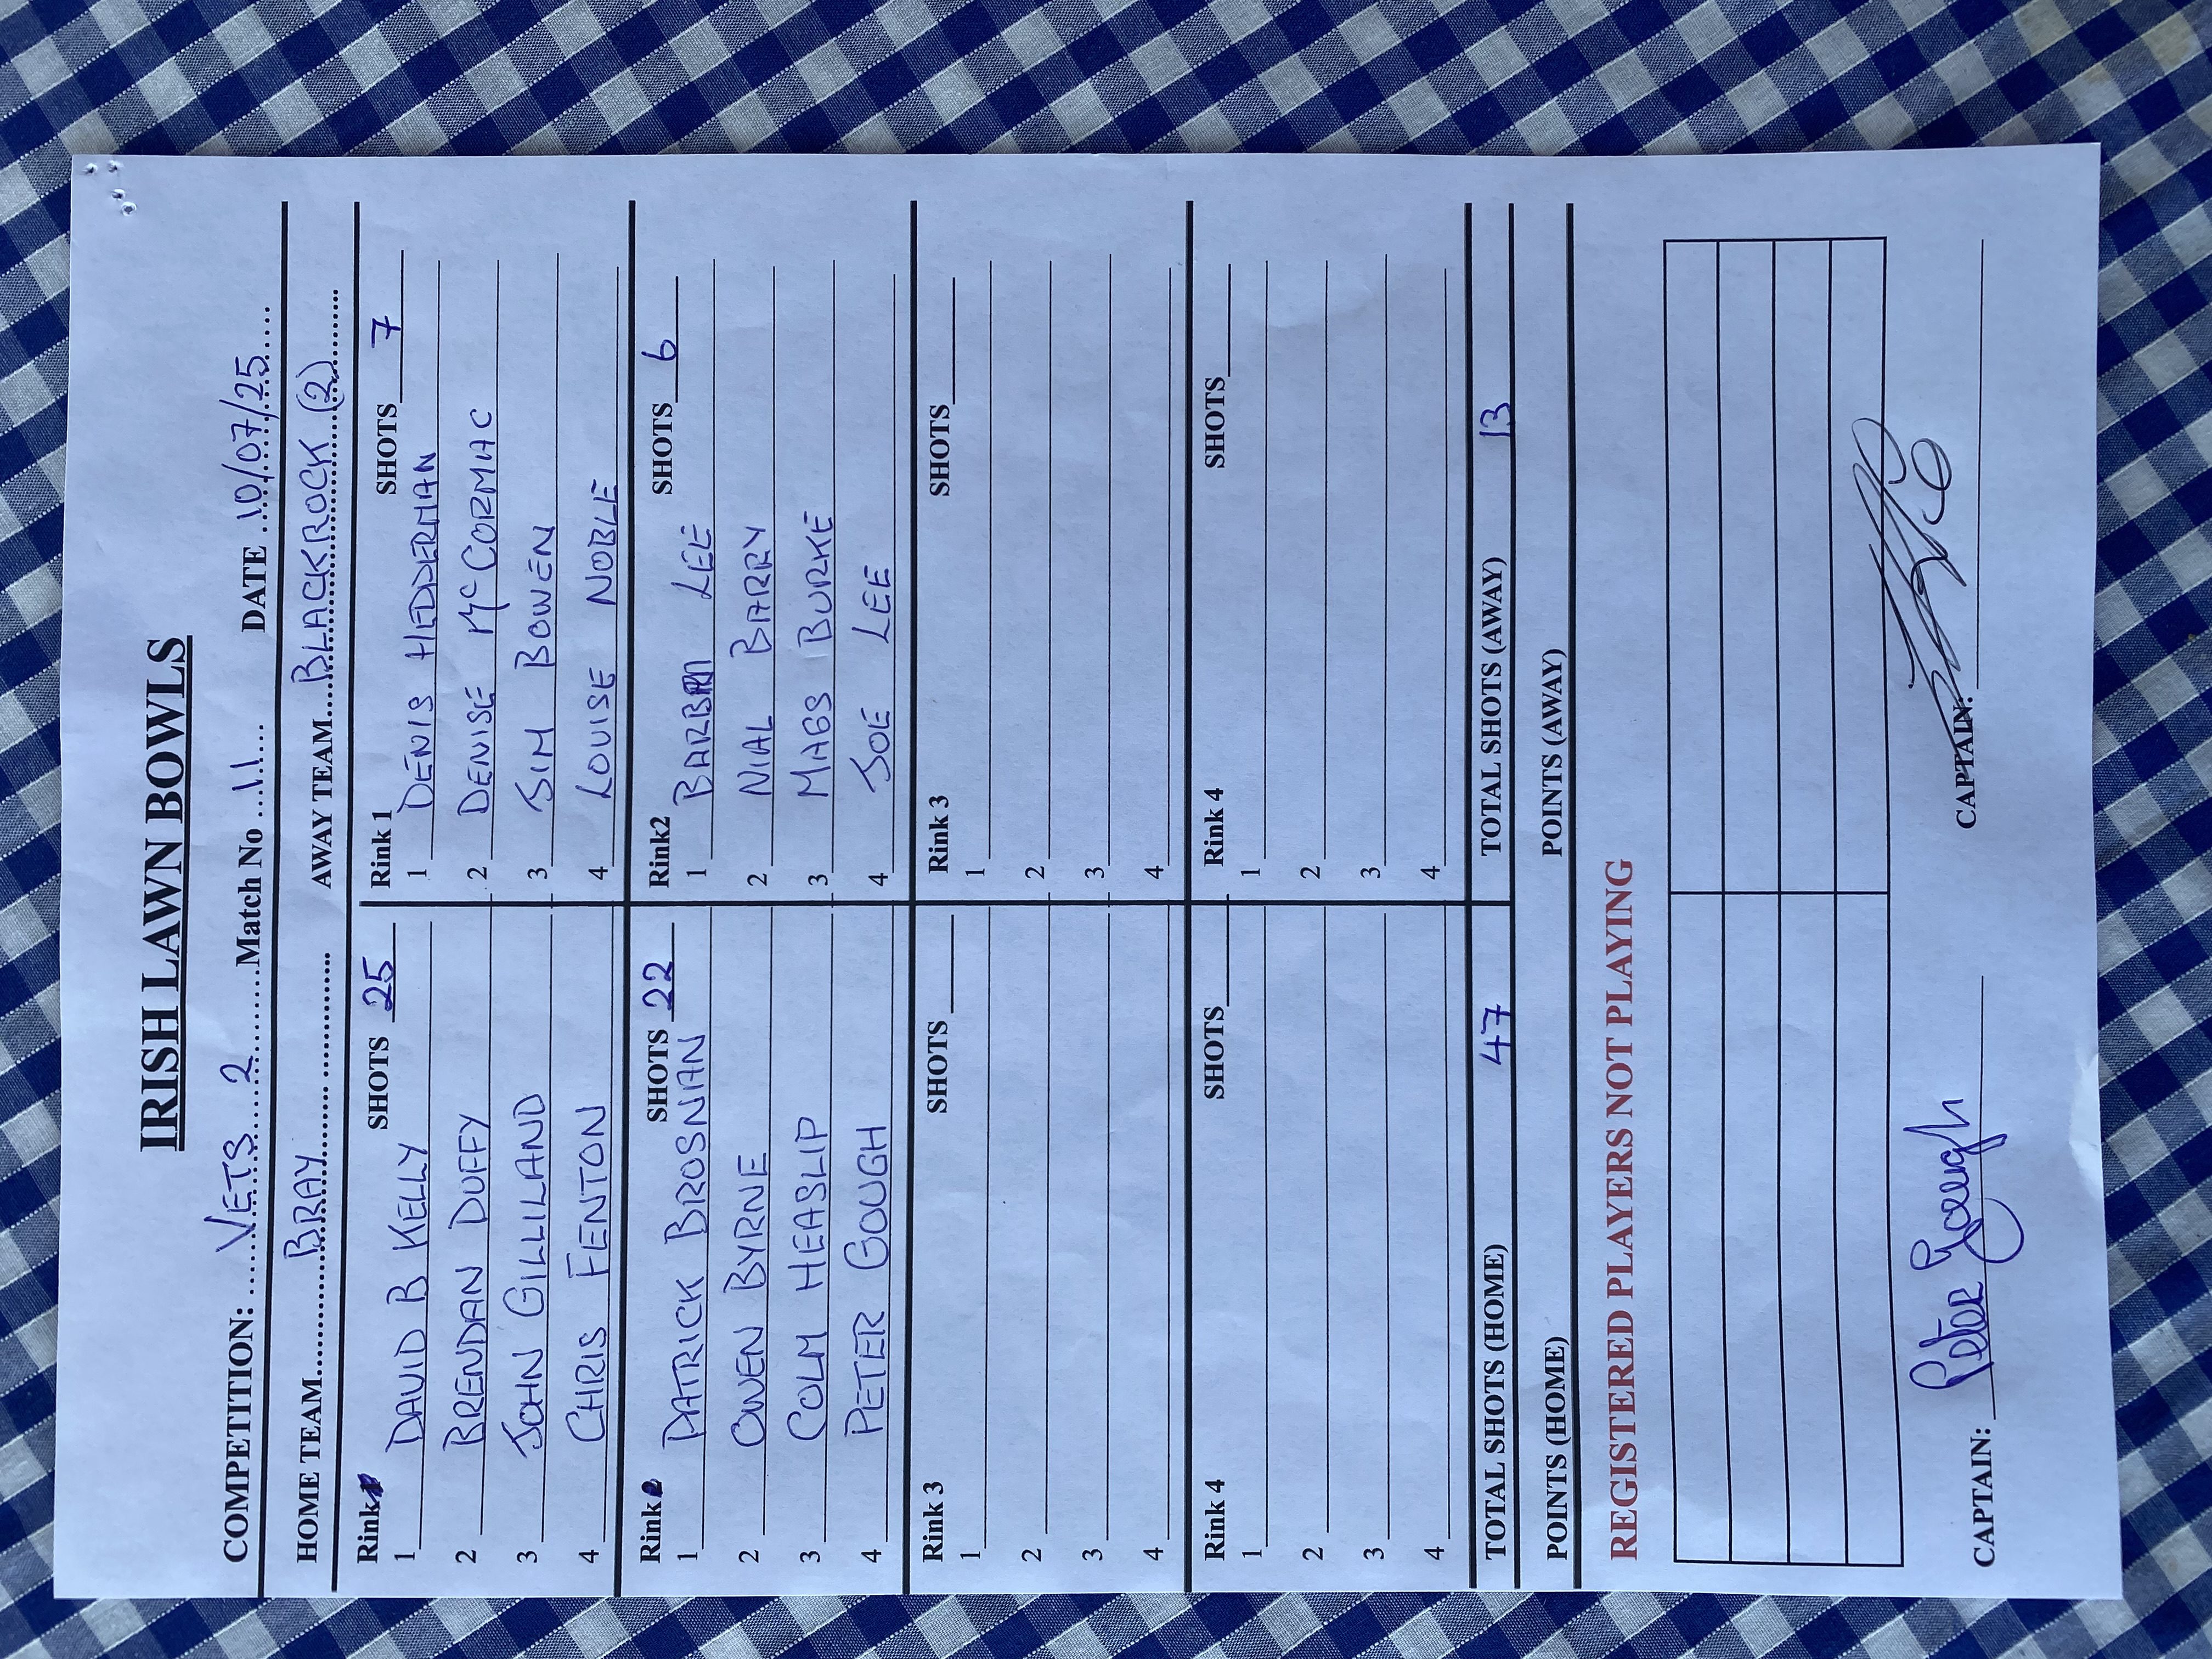 IRISH LAWN BOWLS
COMPETITION: VETS 2 Match No 11 DATE 10/07/25
HOME TEAM BRAY AWAY TEAM BLACKROCK (2)
Rink 1 SHOTS 25 Rink 1 SHOTS 7
1 DAVID B KELLY 1 DENIS HEDDERMAN
2 BRENDAN DUFFY 2 DENISE McCORMAC
3 JOHN GILLILAND 3 JIM BOWEN
4 CHRIS FENTON 4 LOUISE NOBLE
Rink 2 SHOTS 22 Rink2 SHOTS 6
1 PATRICK BROSNAN 1 LEE
2 OWEN BYRNE 2 NIAL BARRY
3 COLM HEASLIP 3 MAGS BURKE
4 PETER GOUGH 4 JOE LEE
Rink 3 SHOTS Rink 3 SHOTS
1 1
2 2
3 3
4 4
Rink 4 SHOTS Rink 4 SHOTS
1 1
2 2
3 3
4 4
TOTAL SHOTS (HOME) 47 TOTAL SHOTS (AWAY) 13
POINTS (HOME) POINTS (AWAY)
REGISTERED PLAYERS NOT PLAYING
CAPTAIN: Peter Gough CAPTAIN: